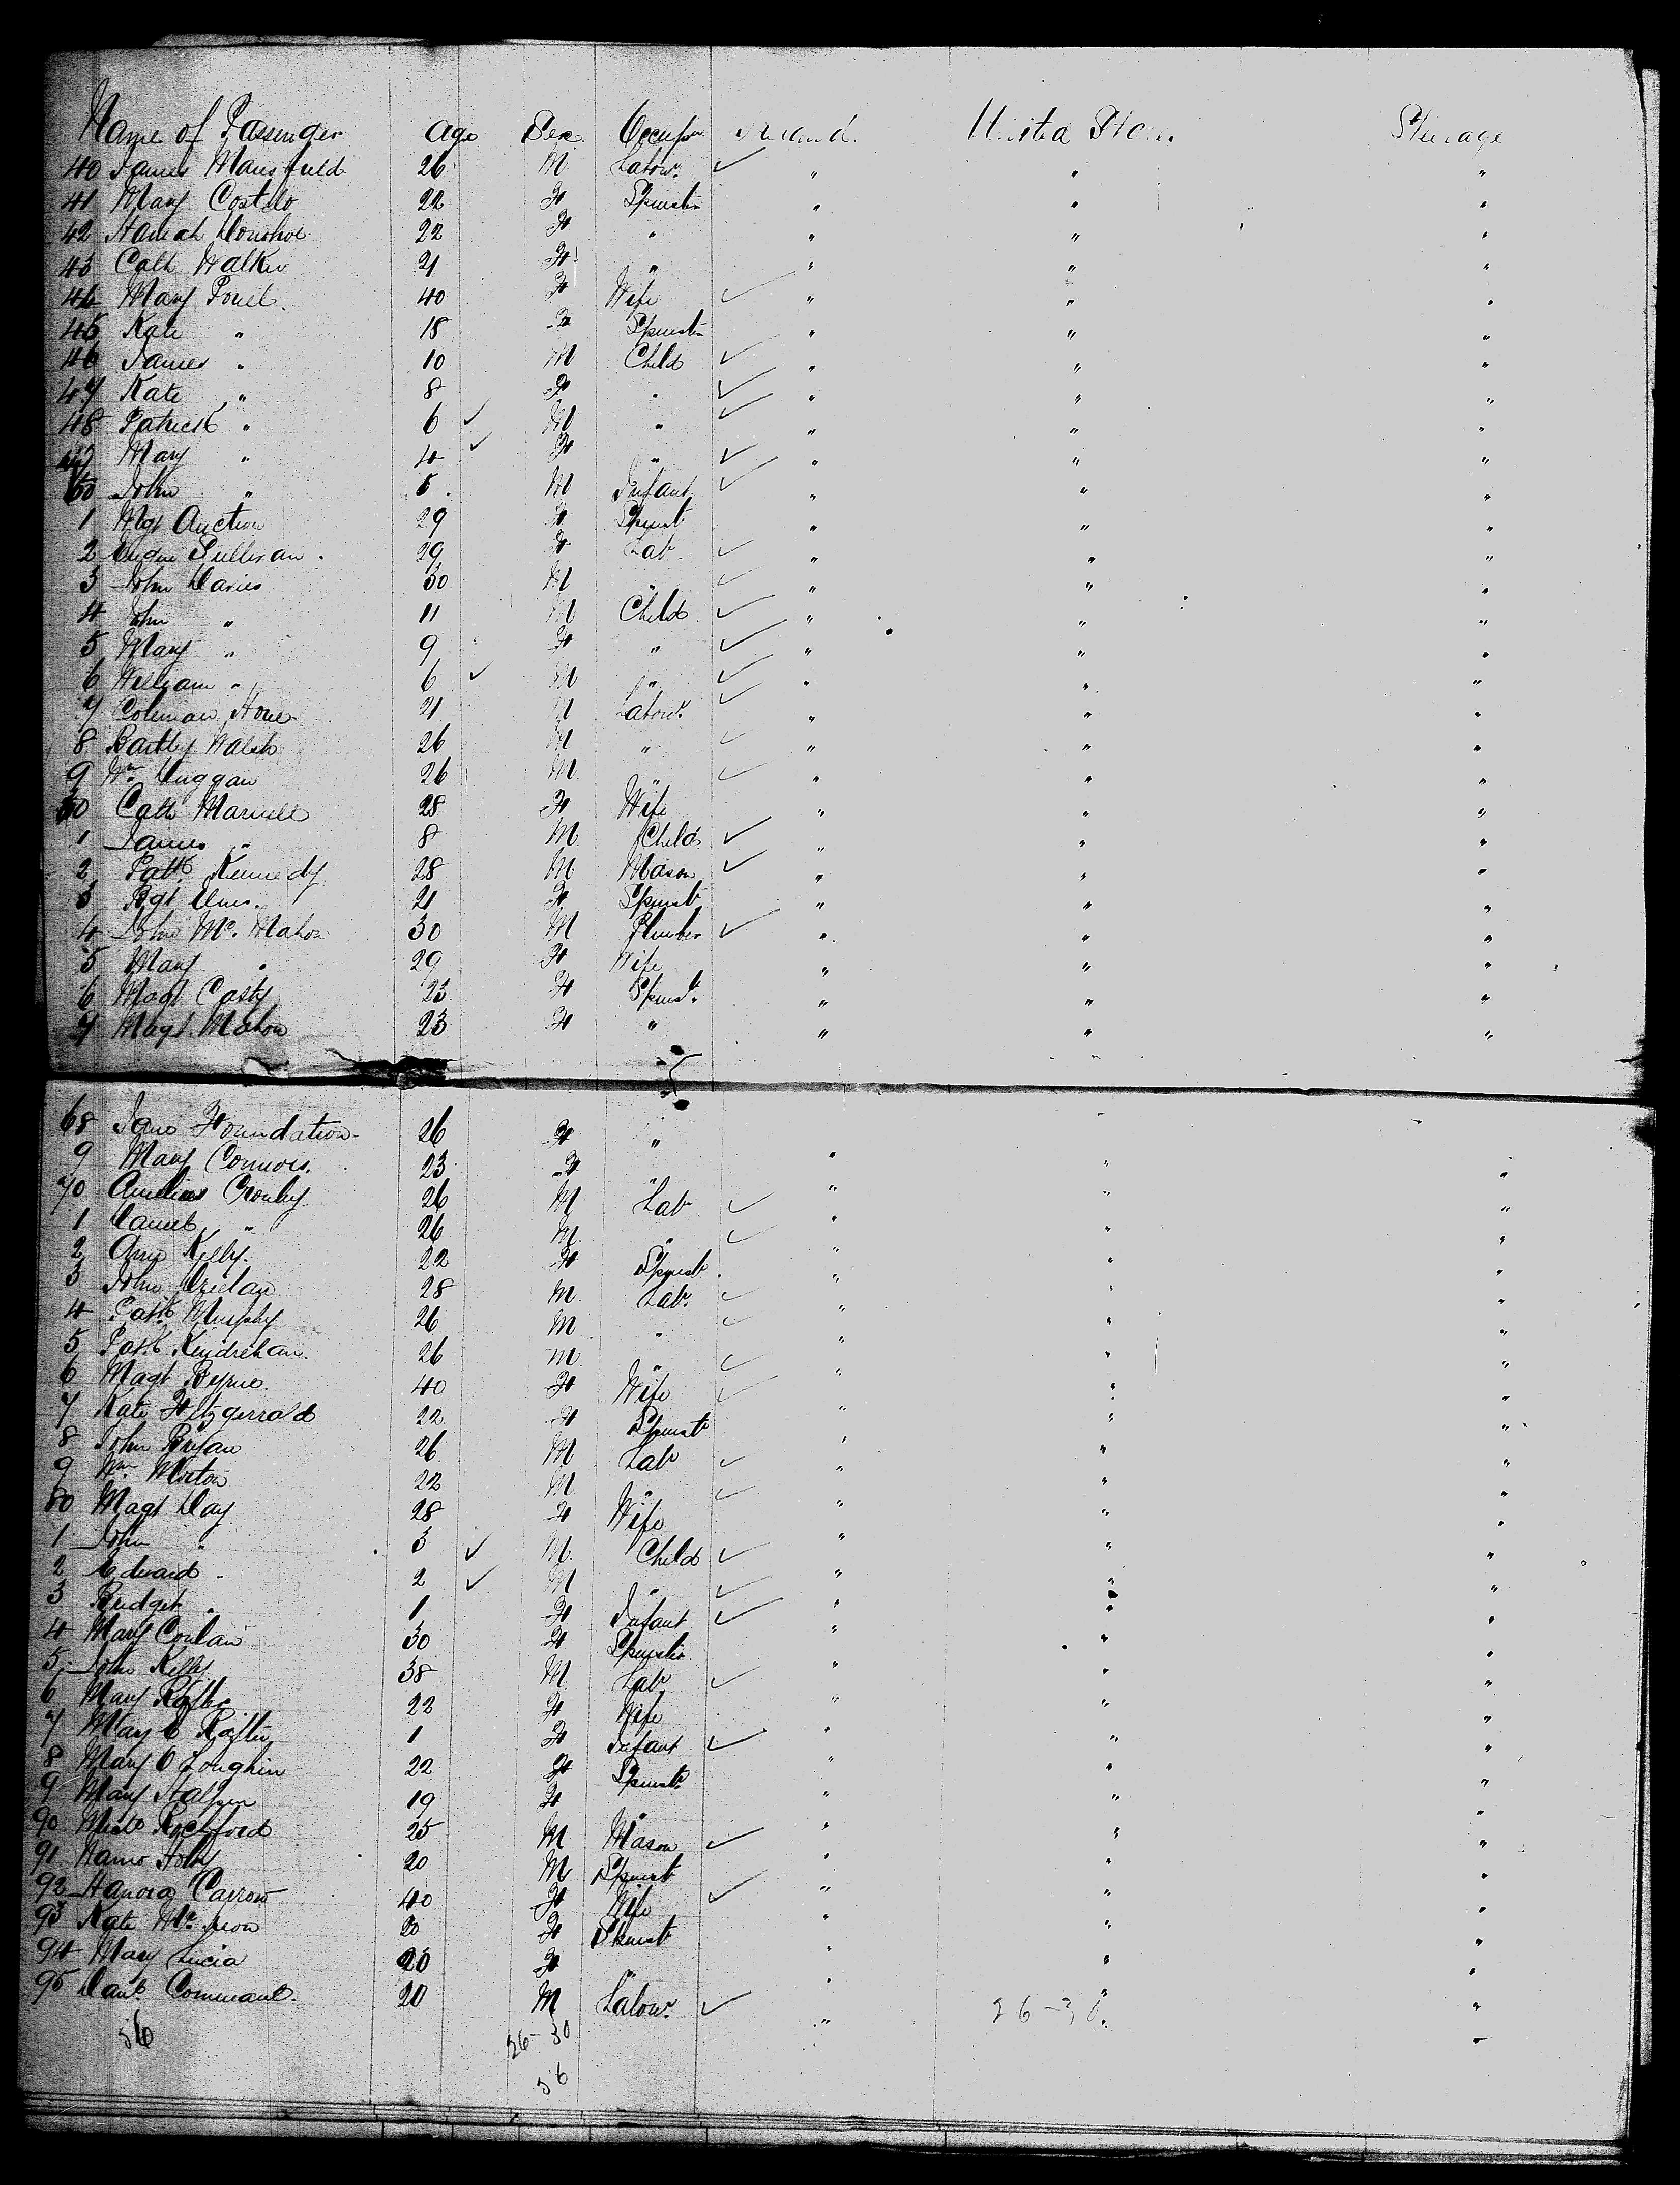 Name of Passenger Age Sex Occupn. Ireland United States Steerage
40 James Mansfield 26 M Labour. ✓ " " "
41 Mary Costelo 22 F Spinster " " "
42 Hanah Donohoe 22 F " " " "
43 Cath Walker 21 F " " " "
44 Mary Powel 40 F Wife ✓ " " "
45 Kate " 18 F Spinstr " " "
46 James " 10 M Child ✓ " " "
47 Kate " 8 F " ✓ " " "
48 Patrick " 6 ✓ M " ✓ " " "
49 Mary " 4 ✓ F " ✓ " " "
50 John " M Infant ✓ " " "
1 Mgt 29 F Spinst " " "
2 Sullivan 29 F Lab ✓ " " "
3 John Davies 30 M " ✓ " " "
4 John " 11 M Child ✓ " " "
5 Mary " 9 F " ✓ " " "
6 William " 6 ✓ M " ✓ " " "
7 Coleman 21 M Labour. ✓ " " "
8 Bartley Walsh 26 M " ✓ " " "
9 Wm Duggan 26 M " ✓ " " "
60 Cath 28 F Wife " " "
1 James " 8 M Child ✓ " " "
2 Patk Kennedy 28 M Mason ✓ " " "
3 Bgt 21 F Spinst " " "
4 John Mc. Mahon 30 M Plumber ✓ " " "
5 Mary " 29 F Wife " " "
6 Magt Casty 23 F Spinst. " " "
7 Magt. Mahon 23 F " " " "
68 Jane Foundation 26 F " " " "
9 Mary Connors. 23 F " " " "
70 Crowley 26 M Lab ✓ " " "
1 Daniel " 26 M " ✓ " " "
2 Ann Kelly. 22 F Spinst. " " "
3 John 28 M Lab. ✓ " " "
4 Patk Murphy 26 M " ✓ " " "
5 Patk 26 M " ✓ " " "
6 Magt Byrne. 40 F Wife ✓ " " "
7 Kate Fitzgerrald 22 F Spinst " " "
8 John Bryan 26 M Lab ✓ " " "
9 Wm Morton 22 M " ✓ " " "
80 Magt Day 28 F Wife " " "
1 John " 3 ✓ M Child ✓ " " "
2 Edward " 2 ✓ M " ✓ " " "
3 Bridget " 1 F Infant ✓ " " "
4 Mary Conlan 30 F Spinster " " "
5 John Kelly 38 M Lab ✓ " " "
6 Mary 22 F Wife " " "
7 Mary 1 F Infant ✓ " " "
8 Mary O Loughlin 22 F Spinst. " " "
9 Mary Halpin 19 F " " " "
90 Michl Rochford 25 M Mason ✓ " " "
91 20 M Spinst " " "
92 Hanora Carrow 40 F Wife ✓ " " "
93 Kate 20 F Spinst " " "
94 Mary Lucia 20 F " " " "
95 Danl. 20 M Labour. ✓ " " "
56 26-30 26-30.
56